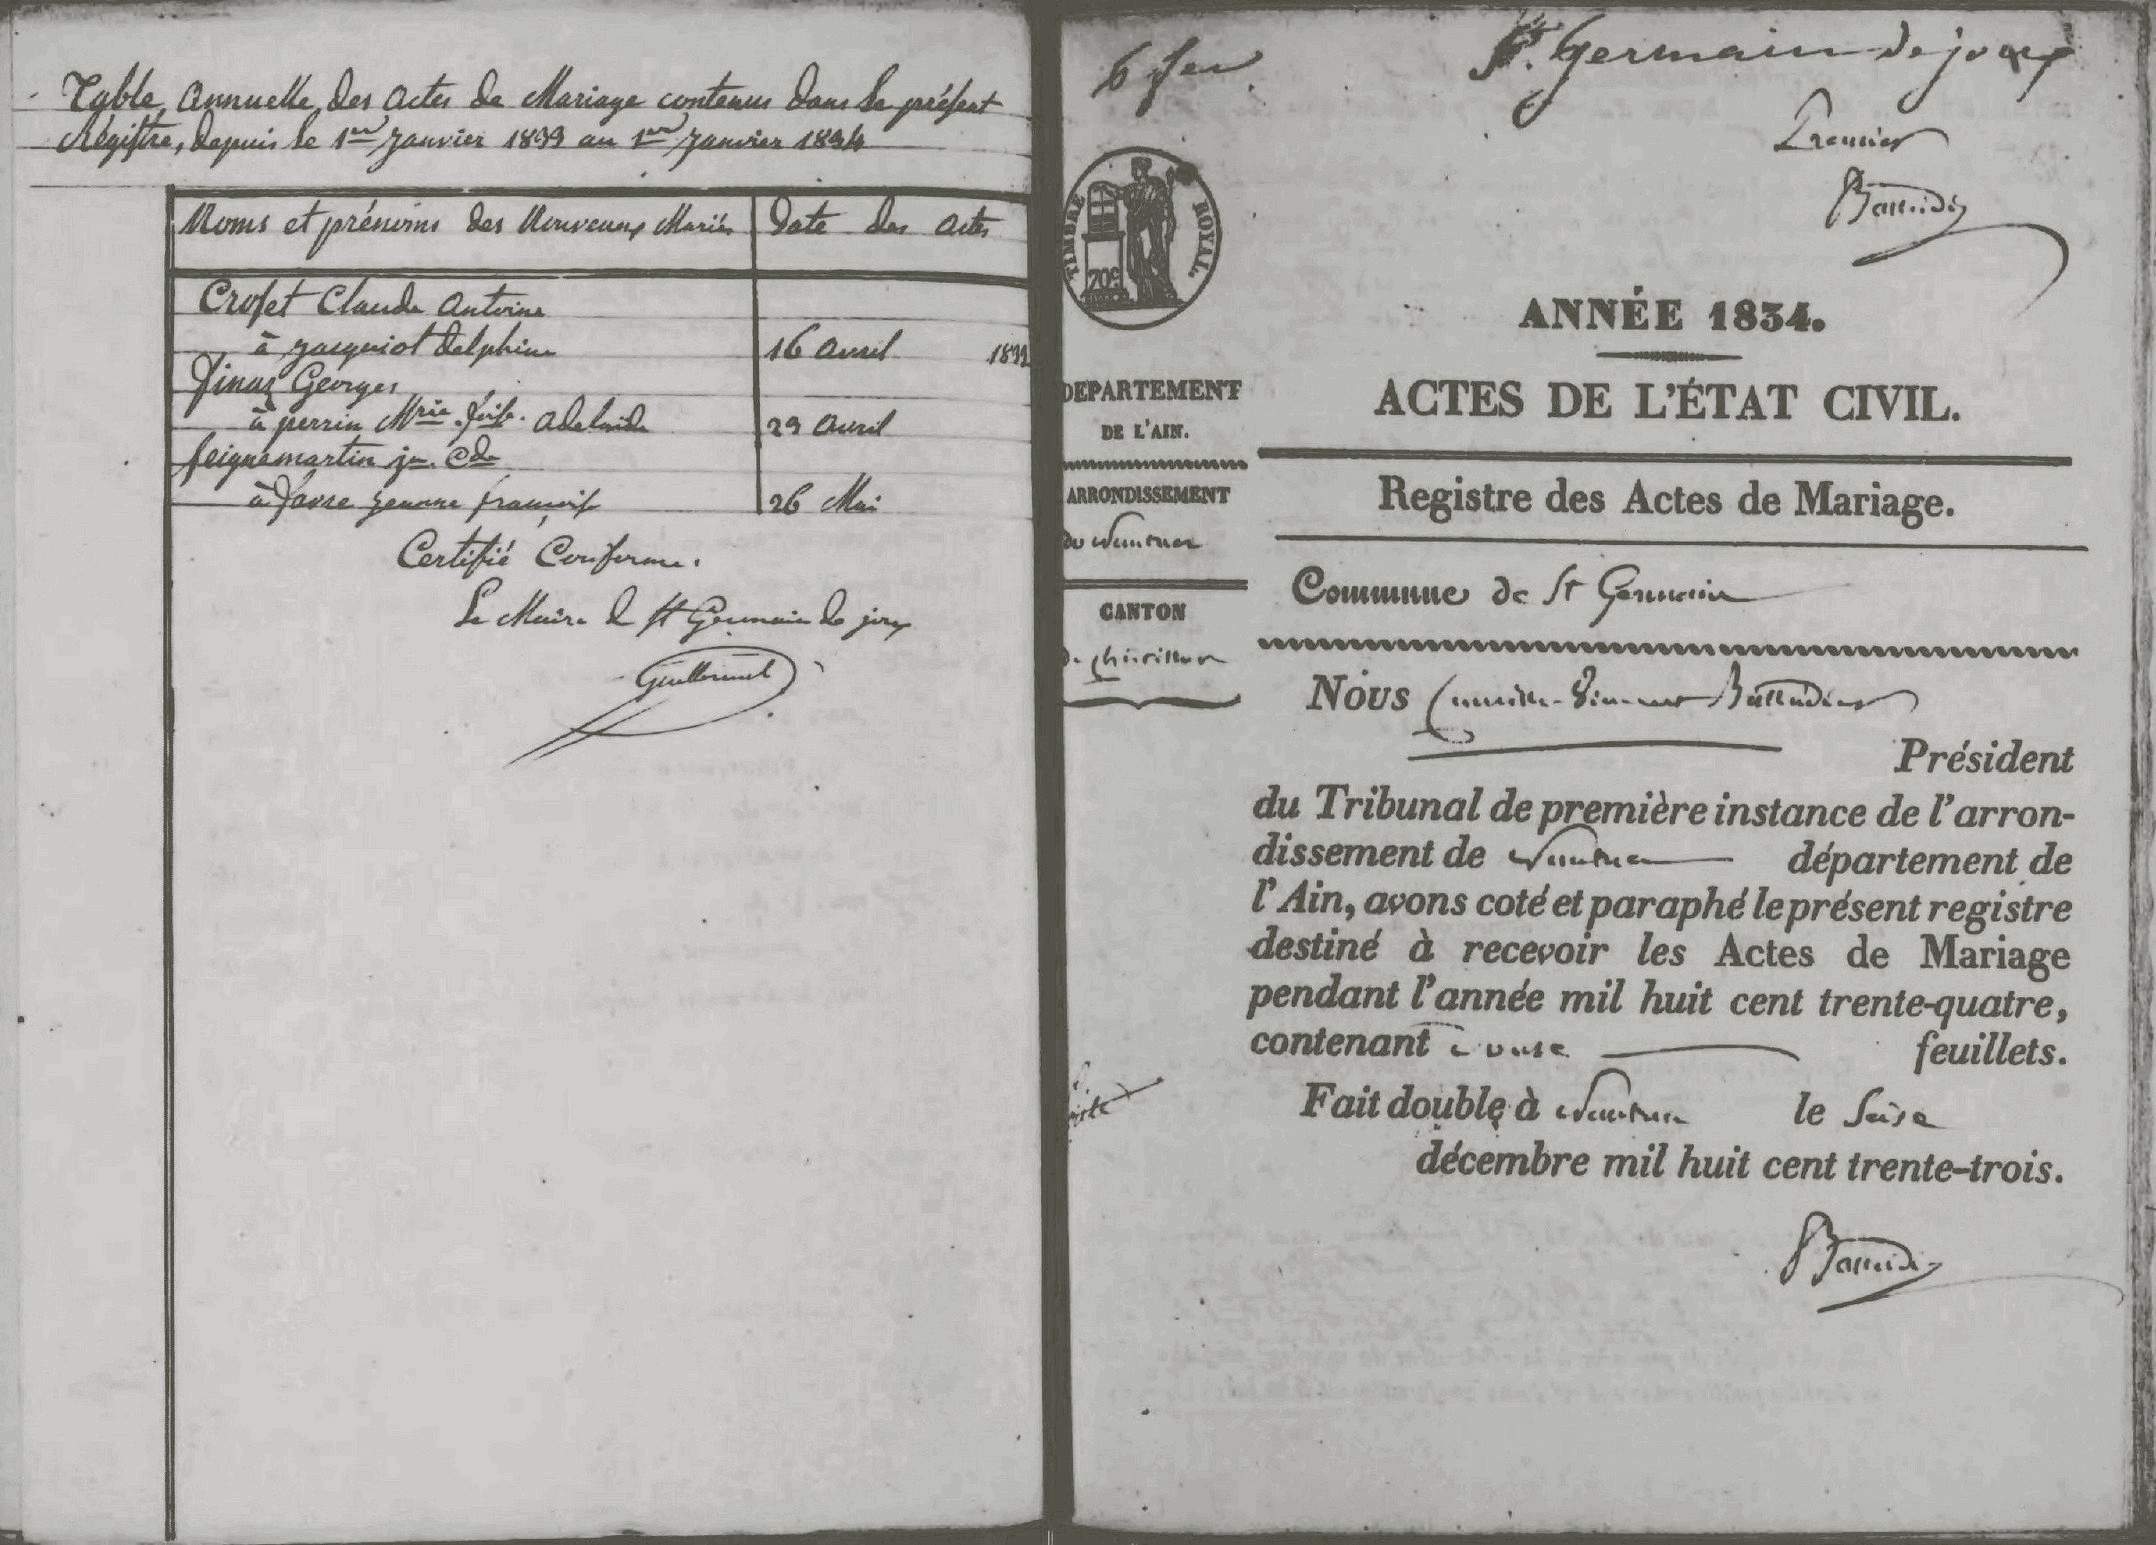 Table annuelle des actes de Mariage contenus dans le présent
Régistre, depuis le 1er Janvier 1833 au 1er Janvier 1834
Noms et prénoms des Nouveaux Mariés
Date des actes
Croset Claude Antoine
à jacquiot delphine
16 avril 1833
Jinaz Georges
à perrin Mrie. adelaide
29 avril
seignemartin jn. Cde
à favre jeanne françoise
26 Mai
Certifié Conforme.
Le Maire de St Germain de joux
Guillermet
6 feu
St. Germain de joux
Premier
TIMBRE ROYAL
70c
ANNÉE 1834.
ACTES DE L'ÉTAT CIVIL.
DEPARTEMENT
DE L'AIN.
ARRONDISSEMENT
de Nantua
CANTON
de Châtillon
Registre des Actes de Mariage.
Commune de St Germain
Nous
Président
du Tribunal de première instance de l'arron-
dissement de Nantua département de
l'Ain, avons coté et paraphé le présent registre
destiné à recevoir les Actes de Mariage
pendant l'année mil huit cent trente-quatre,
contenant feuillets.
Fait double à Nantua le seize
décembre mil huit cent trente-trois.